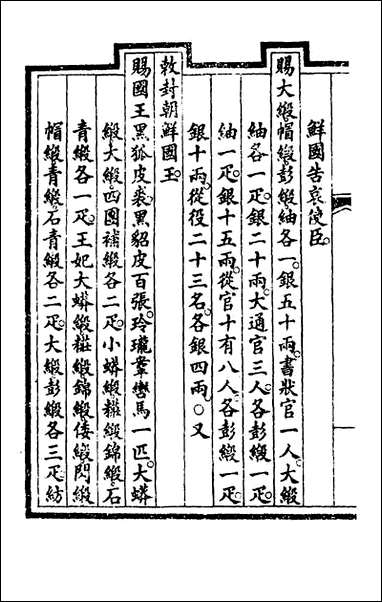 鮮國告哀使臣。
賜大緞帽緞彭緞紬各一。銀五十兩。書狀官一人。大緞
紬各一疋。銀二十兩。大通官三人。各彭緞一疋。
紬一疋。銀十五兩。從官十有八人。各彭緞一疋。
銀十兩。從役二十三名。各銀四兩。○又
敕封朝鮮國王。
賜國王黑狐皮裘。黑貂皮百張。玲瓏鞌轡馬一匹。大蟒
緞大緞。四團補緞各二疋。小蟒緞糚緞錦緞。石
青緞各一疋。王妃大蟒緞糚緞錦緞倭緞閃緞
帽緞青緞。石青緞各二疋。大緞彭緞各三疋紡